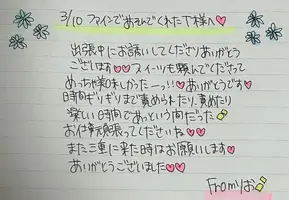 3/10 ファインであそんでくれたT様へ♡
出張中にお誘いしてくださりありがとう
ございます♡♡スイーツも頼んでくださって
めっちゃ美味しかったーっ!!ありがとうです♡
時間ギリギリまで責められたり、責めたり
楽しい時間であっという間だった
お仕事頑張ってくださいね♡♡
また三重に来た時はお願いします♡
ありがとうございました♡♡
Fromりお